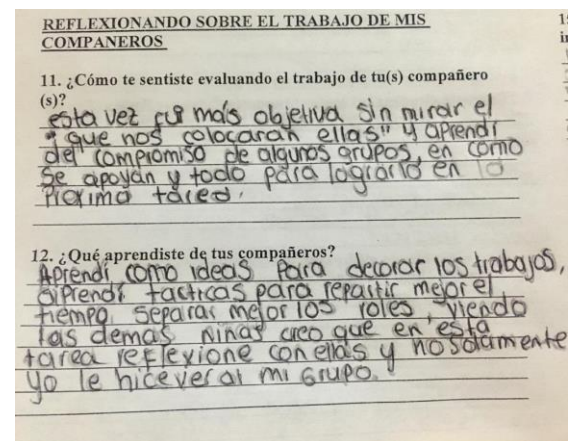 REFLEXIONANDO SOBRE EL TRABAJO DE MIS
COMPAÑEROS
11. ¿Cómo te sentiste evaluando el trabajo de tu(s) compañero
(s)?
esta vez fui más objetiva sin mirar el
"¿que nos colocaran ellas" y aprendí
del compromiso de algunos grupos, en como
se apoyan y todo para lograrlo en la
proxima tarea.
12. ¿Qué aprendiste de tus compañeros?
Aprendí como ideas para decorar los trabajos,
aprendí tacticas para repartir mejor el
tiempo, separar mejor los roles, viendo
las demas niñas creo que en esta
tarea reflexione con ellas y no solamente
yo le hice ver a mi grupo.
1
i